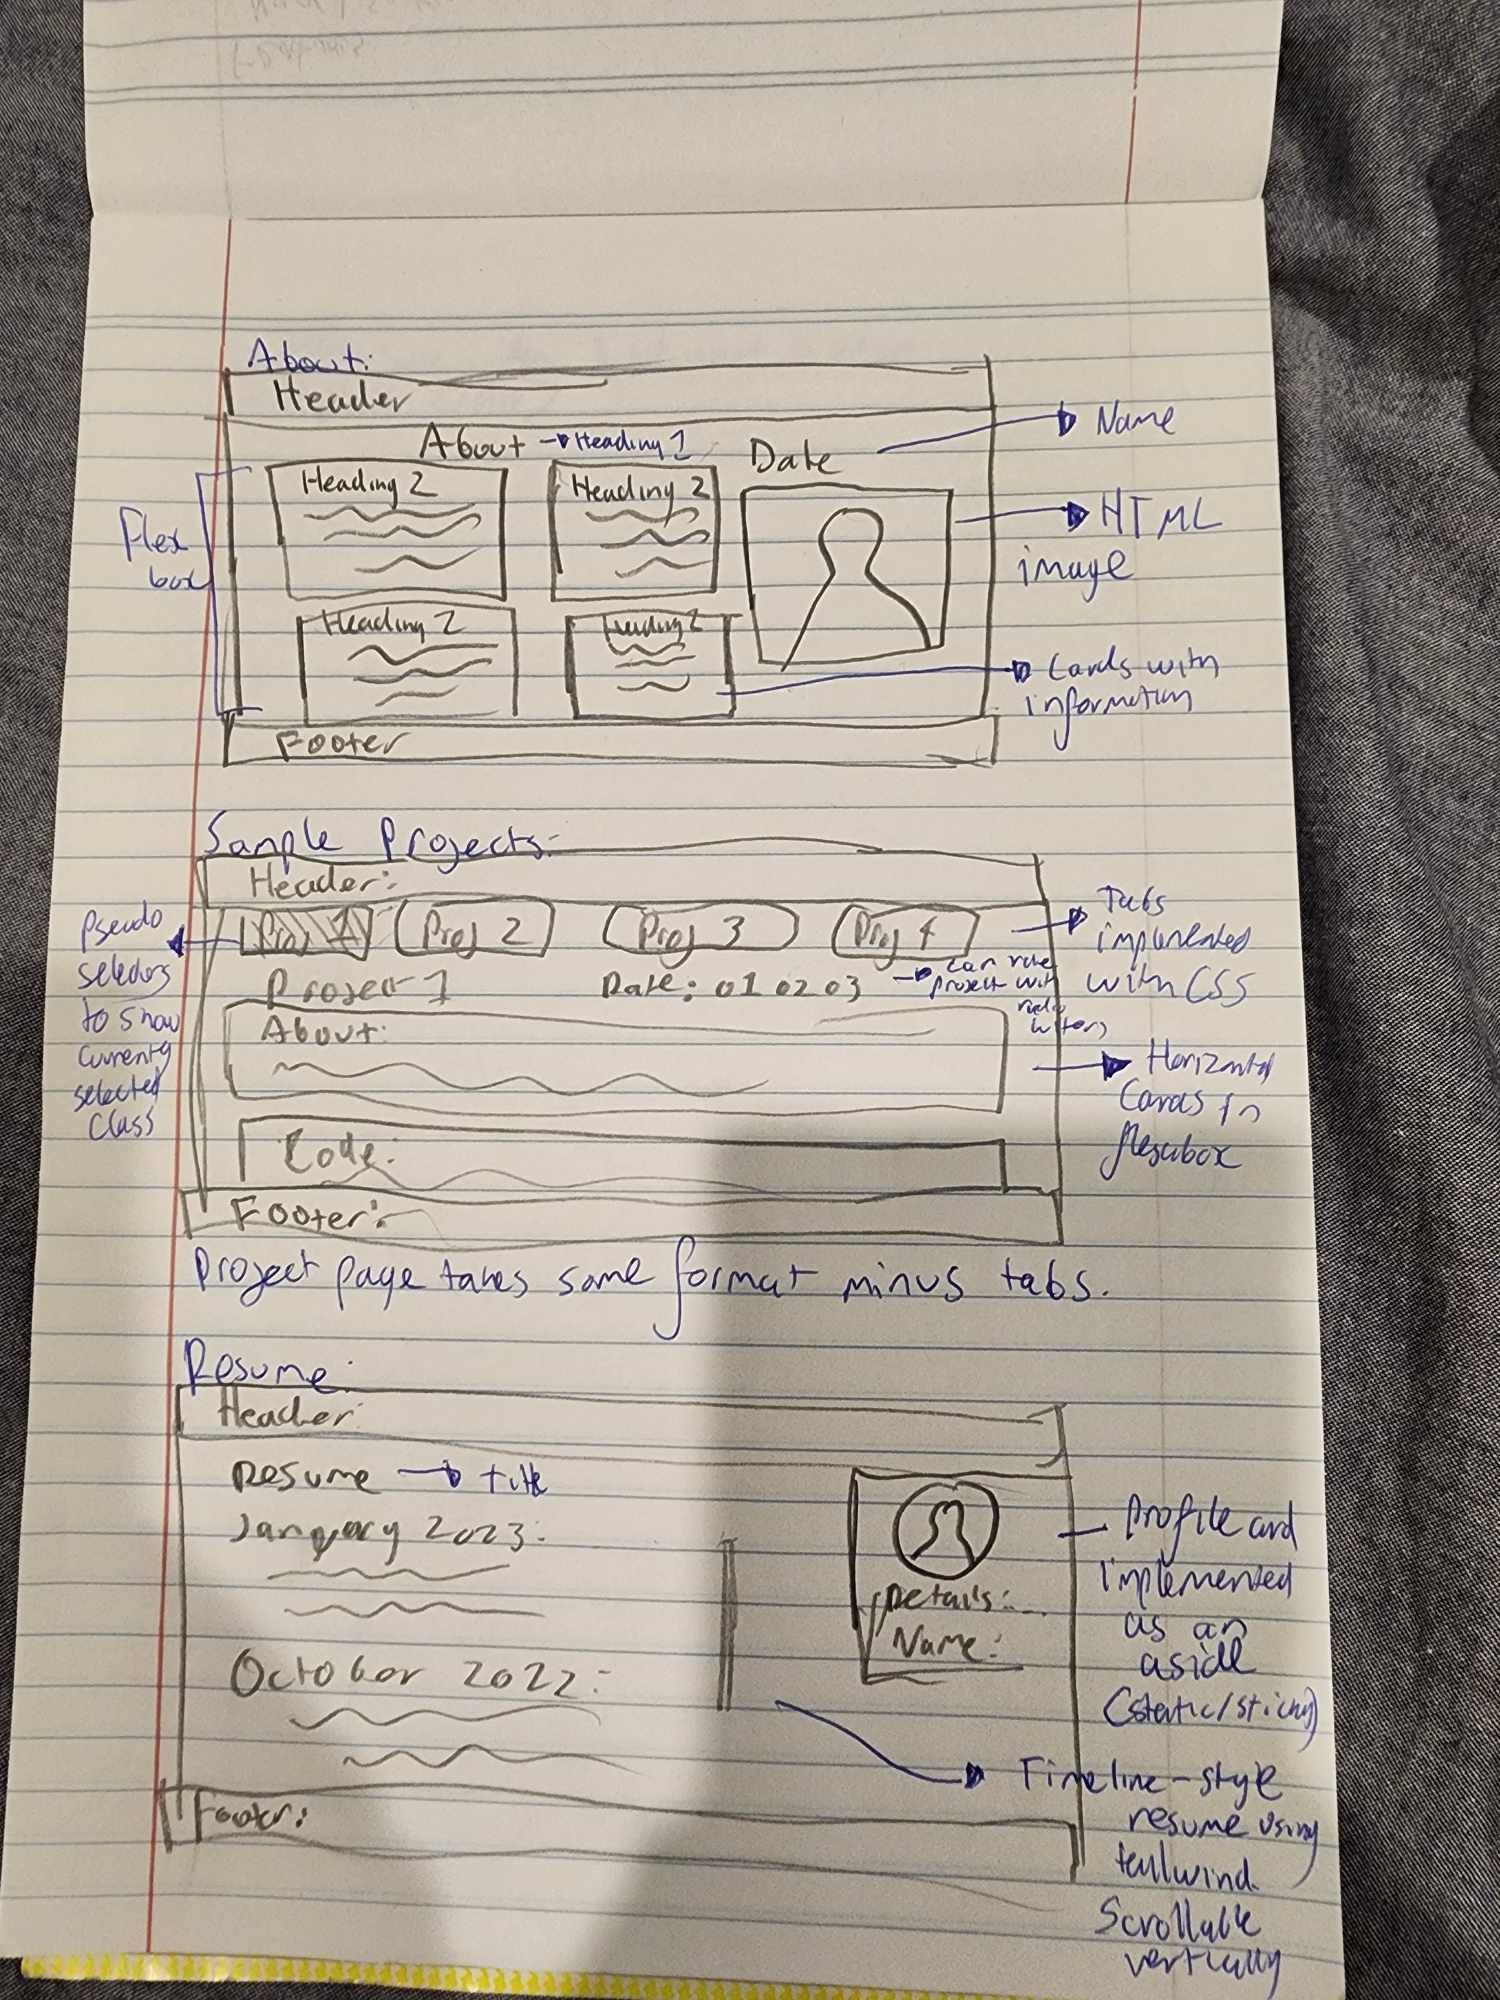 About:
Header
About → Heading 1
Date
Name
Heading 2
Heading 2
Flex
box
HTML
image
Heading 2
Heading 2
Cards with
information
Footer
Sample Projects:
Header:
Proj 1
Proj 2
Proj 3
Proj 4
Pseudo
selectors
to show
currently
selected
class
Tabs
implemented
with CSS
Project 1
Date: 01 02 03
→ can rate
project with
About:
Horizontal
Cards in
flexbox
Code:
Footer:
Project page takes same format minus tabs.
Resume:
Header:
Resume → title
January 2023:
October 2022:
Details:
Name:
Profile card
implemented
as an
aside
(static/sticky)
Timeline-style
resume using
tailwind.
Scrollable
vertically
Footer: